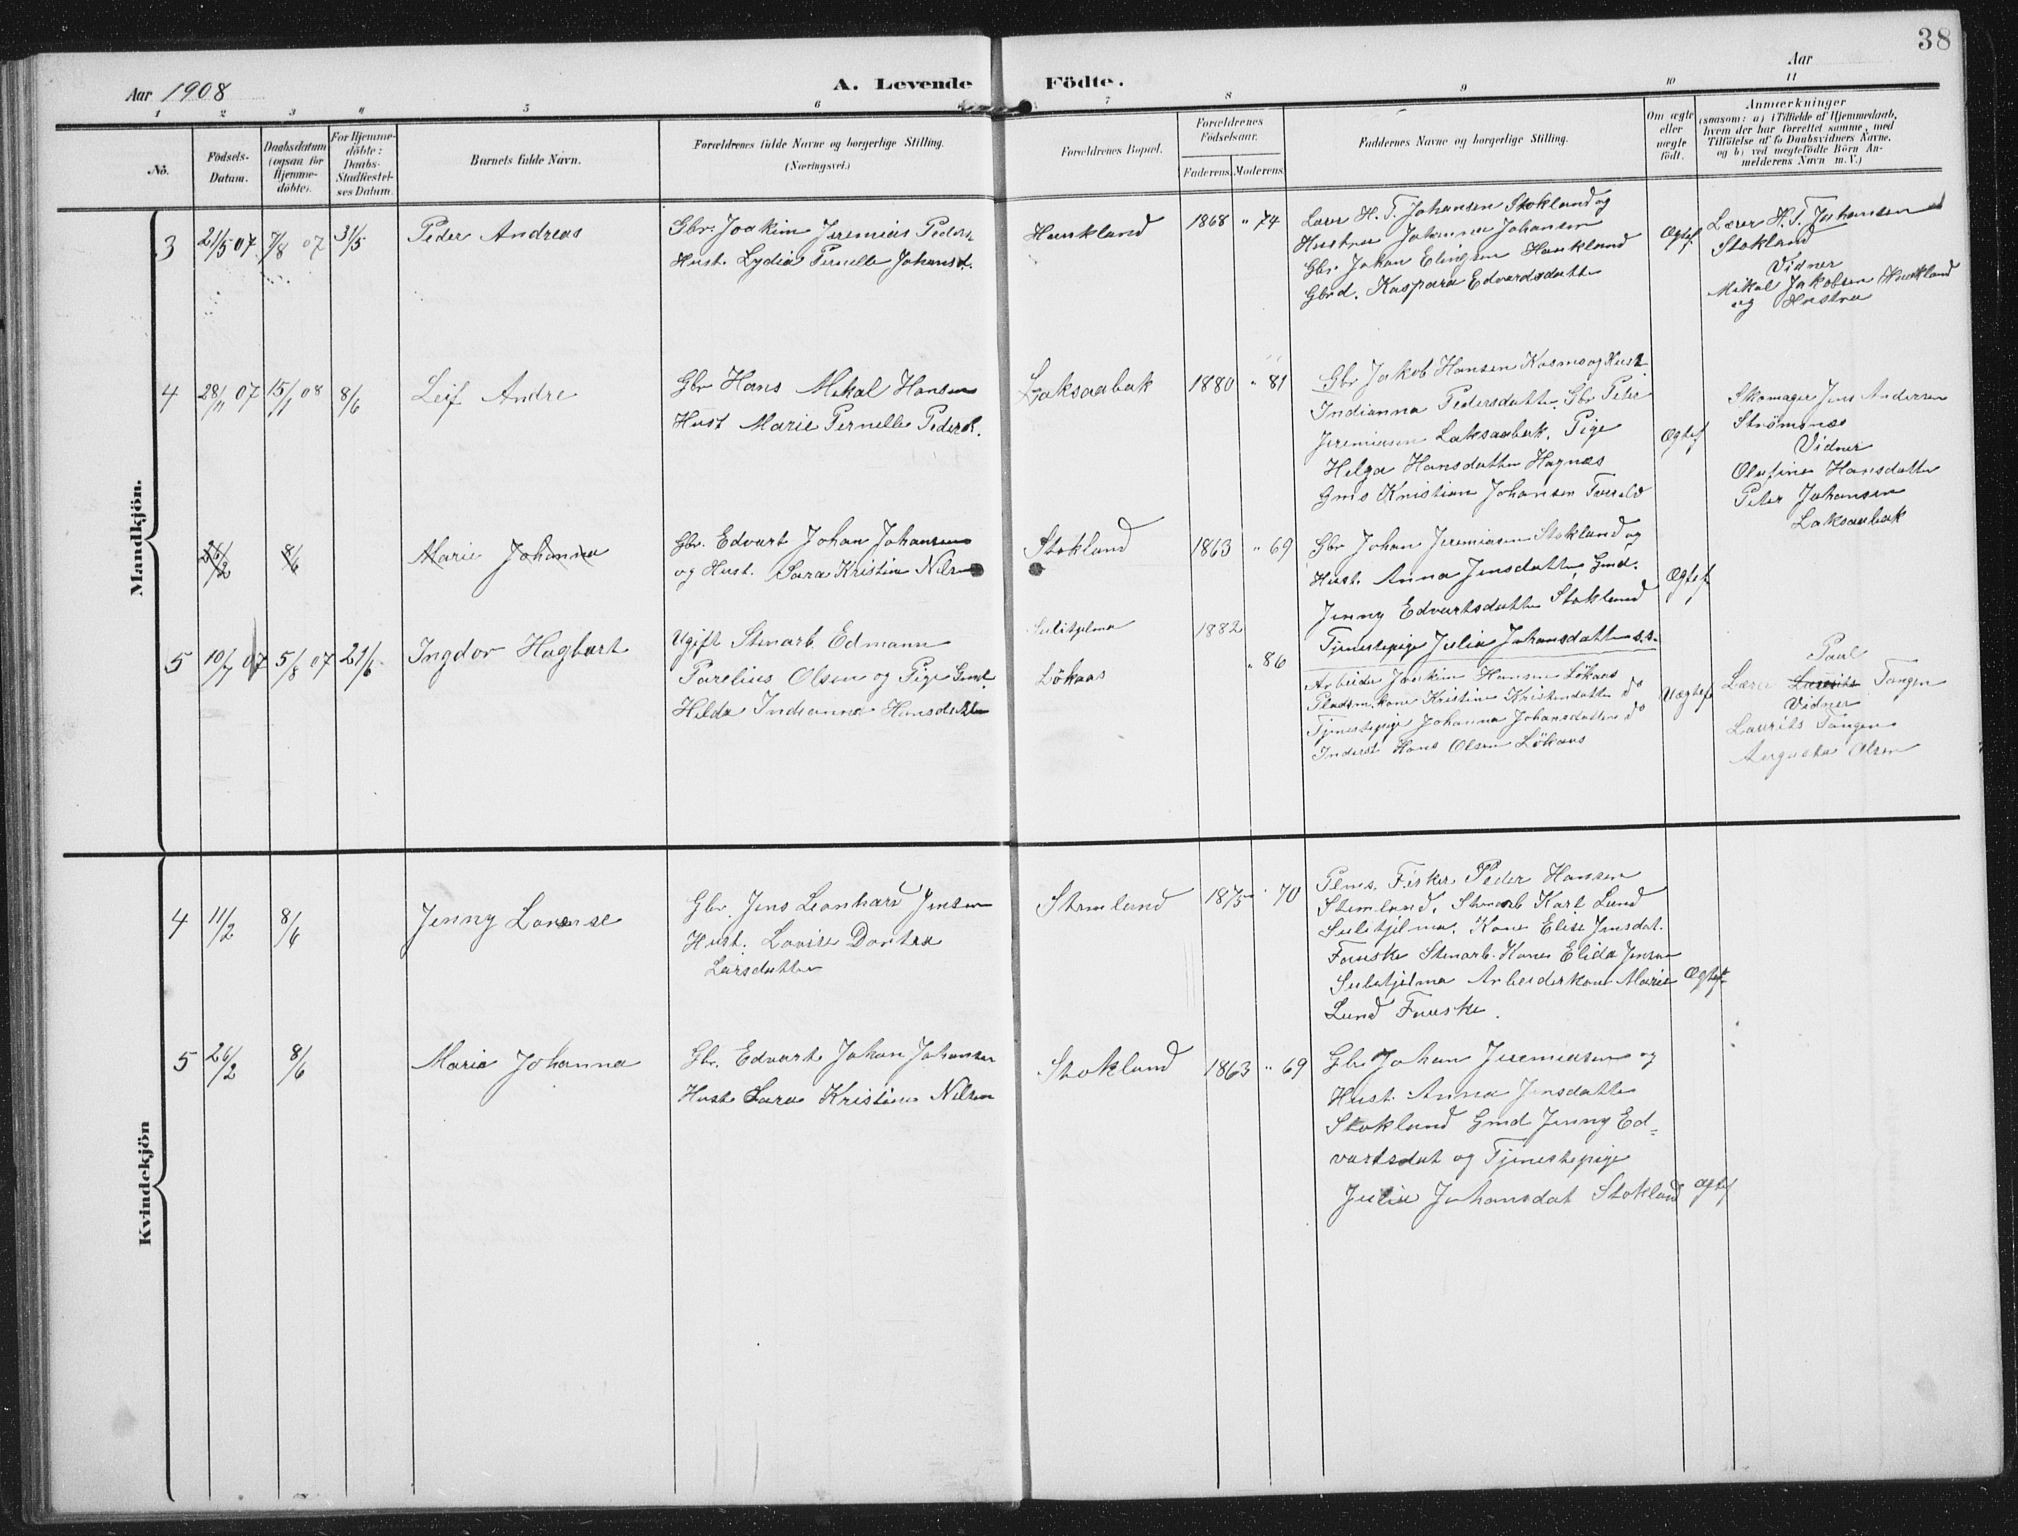 38
Aar 1908
A. Levende Födte.
Aar
1 2 3 " 5 6 7 8 9 10 11
No.
Födsels-
Datum.
Daabsdatum
(ogsaa for
Hjemme-
döbte).
For Hjemme-
döbte:
Daabs-
Stadfæstel-
ses Datum.
Barnets fulde Navn.
Forældrenes fulde Navne og borgerlige Stilling.
(Næringsvei.)
Forældrenes Bopæl.
Forældrenes
Födselsaar.
Faderens Moderens
Faddernes Navne og borgerlige Stilling.
Om ægte
eller
uægte
födt.
Anmærkninger
(saasom: a) i Tilfælde af Hjemmedaab,
hvem der har forrettet samme, med
Tilföielse af to Daabsvidners Navne.
og b) ved uægtefödte Börn An-
melderens Navn m. V.)
Mandkjön.
3 21/5 07 7/8 07 31/5 Peder Andreas
Gbr. Joakim Jeremias Peders
Hust. Lydia Pernelle Johansd.
Haukland 1868 " 74
Lærer H. T. Johansen Stokland og
Hustru Johanna Johansen
Gbr. Johan Elingsen Haukland
Gbrd. Kaspara Edvardsdatte
Ægtef
Lærer H. T. Johansen
Stokland
Vidner
Mikal Jakobsen Haukland
og Hustru
4 28/11 07 15/1 08 8/6 Leif Andre
Gbr Hans Mikal Hansen
Hust Marie Pernelle Pedersd.
Laksaabak 1880 " 81
Gbr Jakob Hansen Kosmo og Hust
Indianna Pedersdatte. Gbr Peter
Jeremiesen Laksaabak. Pige
Helga Hansdatte Hagnæs
Gms Kristian Johansen
Ægtef
Skomager Jens Andersen
Strömsnes
Vidner
Olufine Hansdatte
Peter Johansen
Laksaabak
26/2 8/6 Marie Johanna
Gbr. Edvart Johan Johansen
og Hust. Sara Kristine Nils
Stokland 1863 " 69
Gbr Johan Jeremiasen Stokland og
Hust. Anna Jensdatte, Gmd.
Jenny Edvartsdatte Stokland
Tjenestepige Julia Johansdatte s.s.
Ægtef
5 10/7 07 5/8 07 21/6 Ingdor Hagbart
Ugift Stenarb. Edmann
Parelius Olsen og Pige Gmd.
Hilda Indianna Hansdatte
Sulitjelma 1882
Lökaas " 86
Arbeider Joakim Hansen Lökaas
Pladsm.kone Kristine Kristendatte do
Tjenestepige Johanna Johansdatte do
Inderst Hans Olsen Lökaas
Uægtef
Paul
Lærer Laurits Tangen
Vidner
Laurits Tangen
Augusta Olsen
Kvindekjön
4 11/2 8/6 Jenny Lovense
Gbr. Jens Leonhard Jensen
Hust. Lovise Dortea
Larsdatte
Stemland 1875 " 70
Plms. Fisker Peder Hansen
Stemland. Stenarb Karl Lund
Sulitjelma. Kone Elise Jensdat.
Fauske Stenarb. Kone Elida Jensen
Sulitjelma Arbeiderkone Marie
Lund Fauske.
Ægtef
5 26/2 8/6 Marie Johanna
Gbr. Edvart Johan Johansen
Hust Sara Kristine Nilsen
Stokland 1863 " 69
Gbr Johan Jeremiasen og
Hust. Anna Jensdatte
Stokland Gmd Jenny Ed=
vartsdat og Tjenestepige
Julie Johansdat Stokland
Ægtef